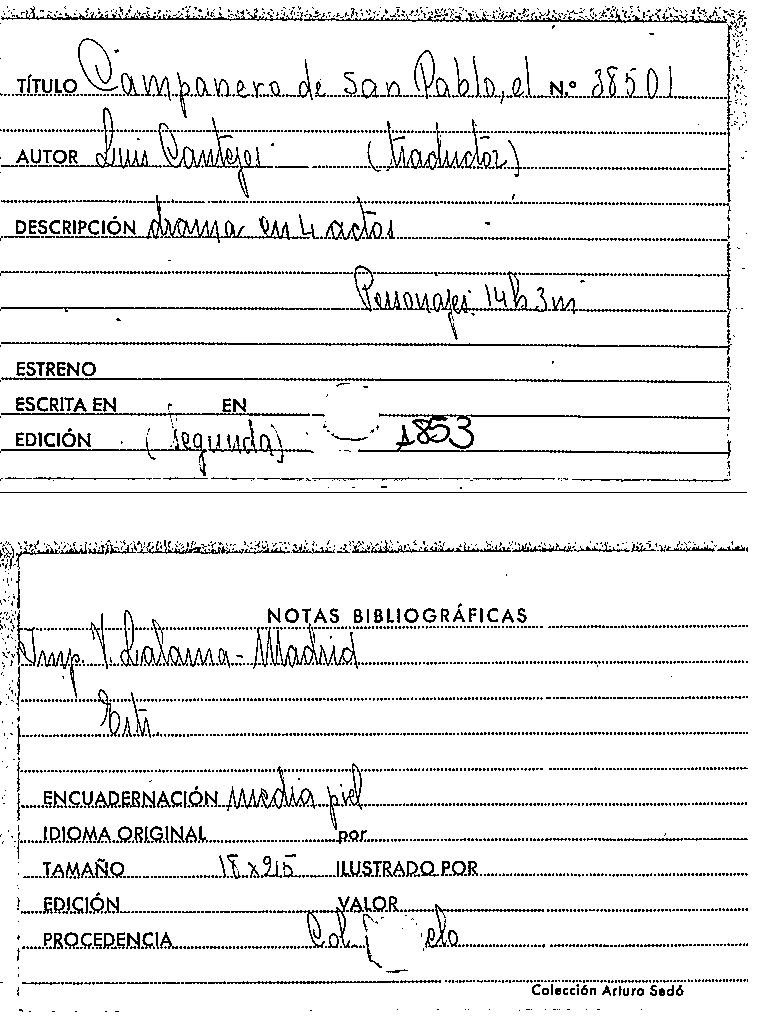 TÍTULO Campanero de San Pablo, el N.º 38501
AUTOR Luis Cantejos (traductor)
DESCRIPCIÓN drama en 4 actos
Personajes 14 h 3 m
ESTRENO
ESCRITA EN EN
EDICIÓN (segunda) 1853
NOTAS BIBLIOGRÁFICAS
Imp. V. Lalama - Madrid
ENCUADERNACIÓN media piel
IDIOMA ORIGINAL por
TAMAÑO ILUSTRADO POR
EDICIÓN VALOR
PROCEDENCIA Col.
Colección Arturo Sedó